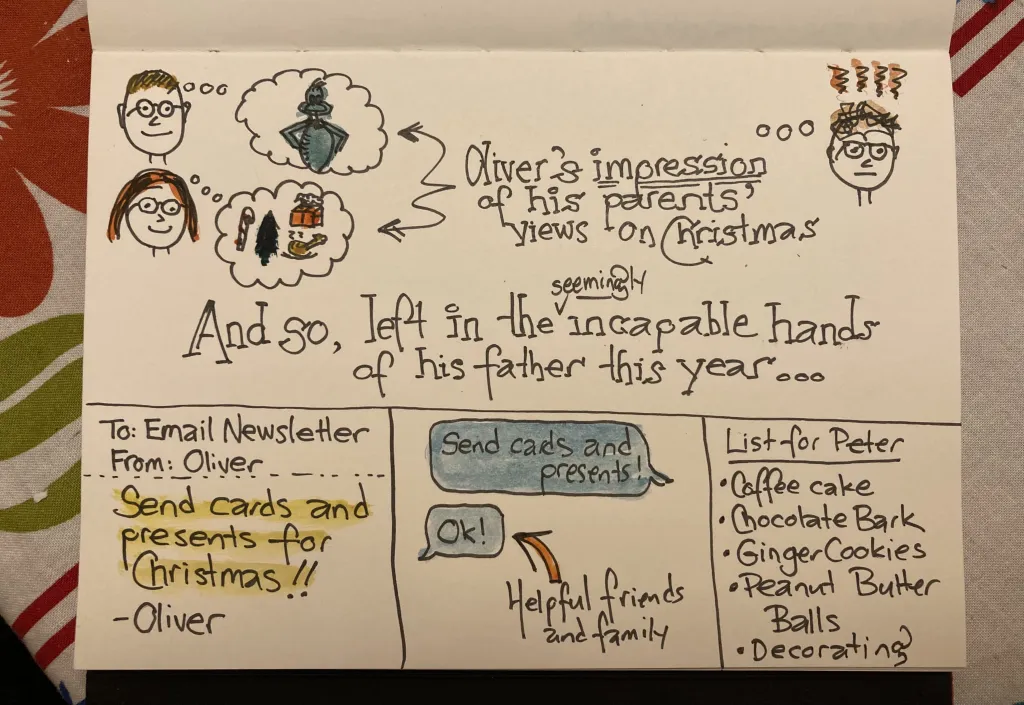 Oliver's impression
of his parents'
views on Christmas
And so, left in the seemingly incapable hands
of his father this year...
To: Email Newsletter
From: Oliver
Send cards and
presents for
Christmas!!
-Oliver
Send cads and
presents!
Ok!
Helpful friends
and family
List for Peter
• Coffee cake
• Chocolate Bark
• Ginger Cookies
• Peanut Butter
Balls
• Decorating